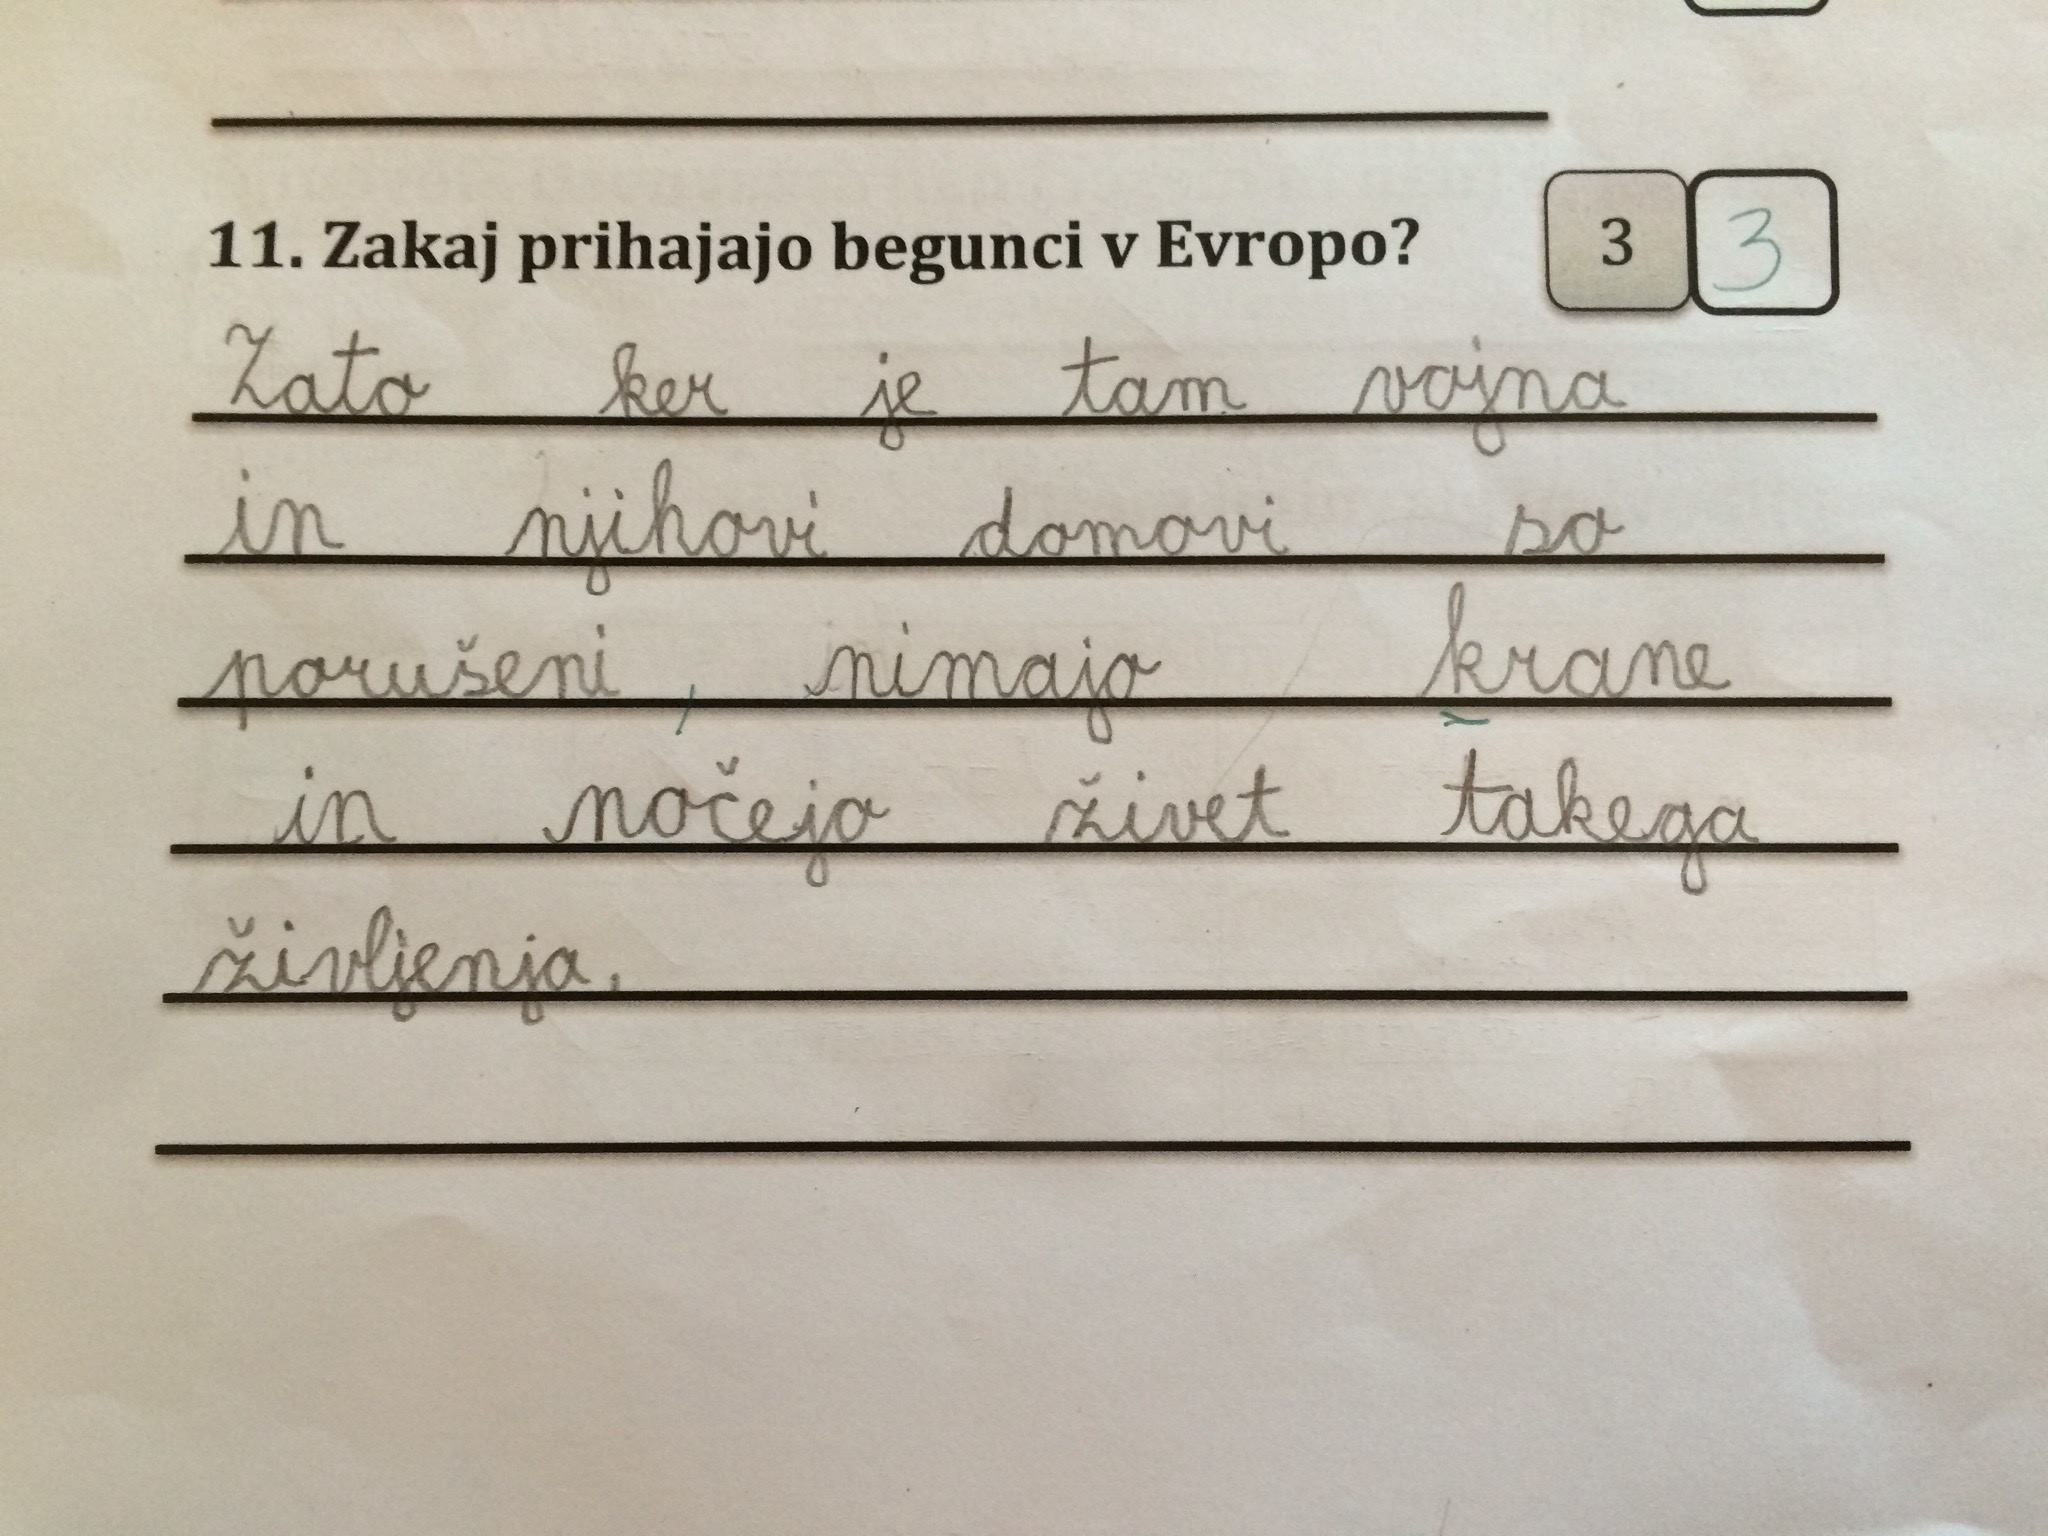 11. Zakaj prihajajo begunci v Evropo? 3 3
Zato ker je tam vojna
in njihovi domovi so
porušeni, nimajo krane
in nočejo živet takega
življenja.